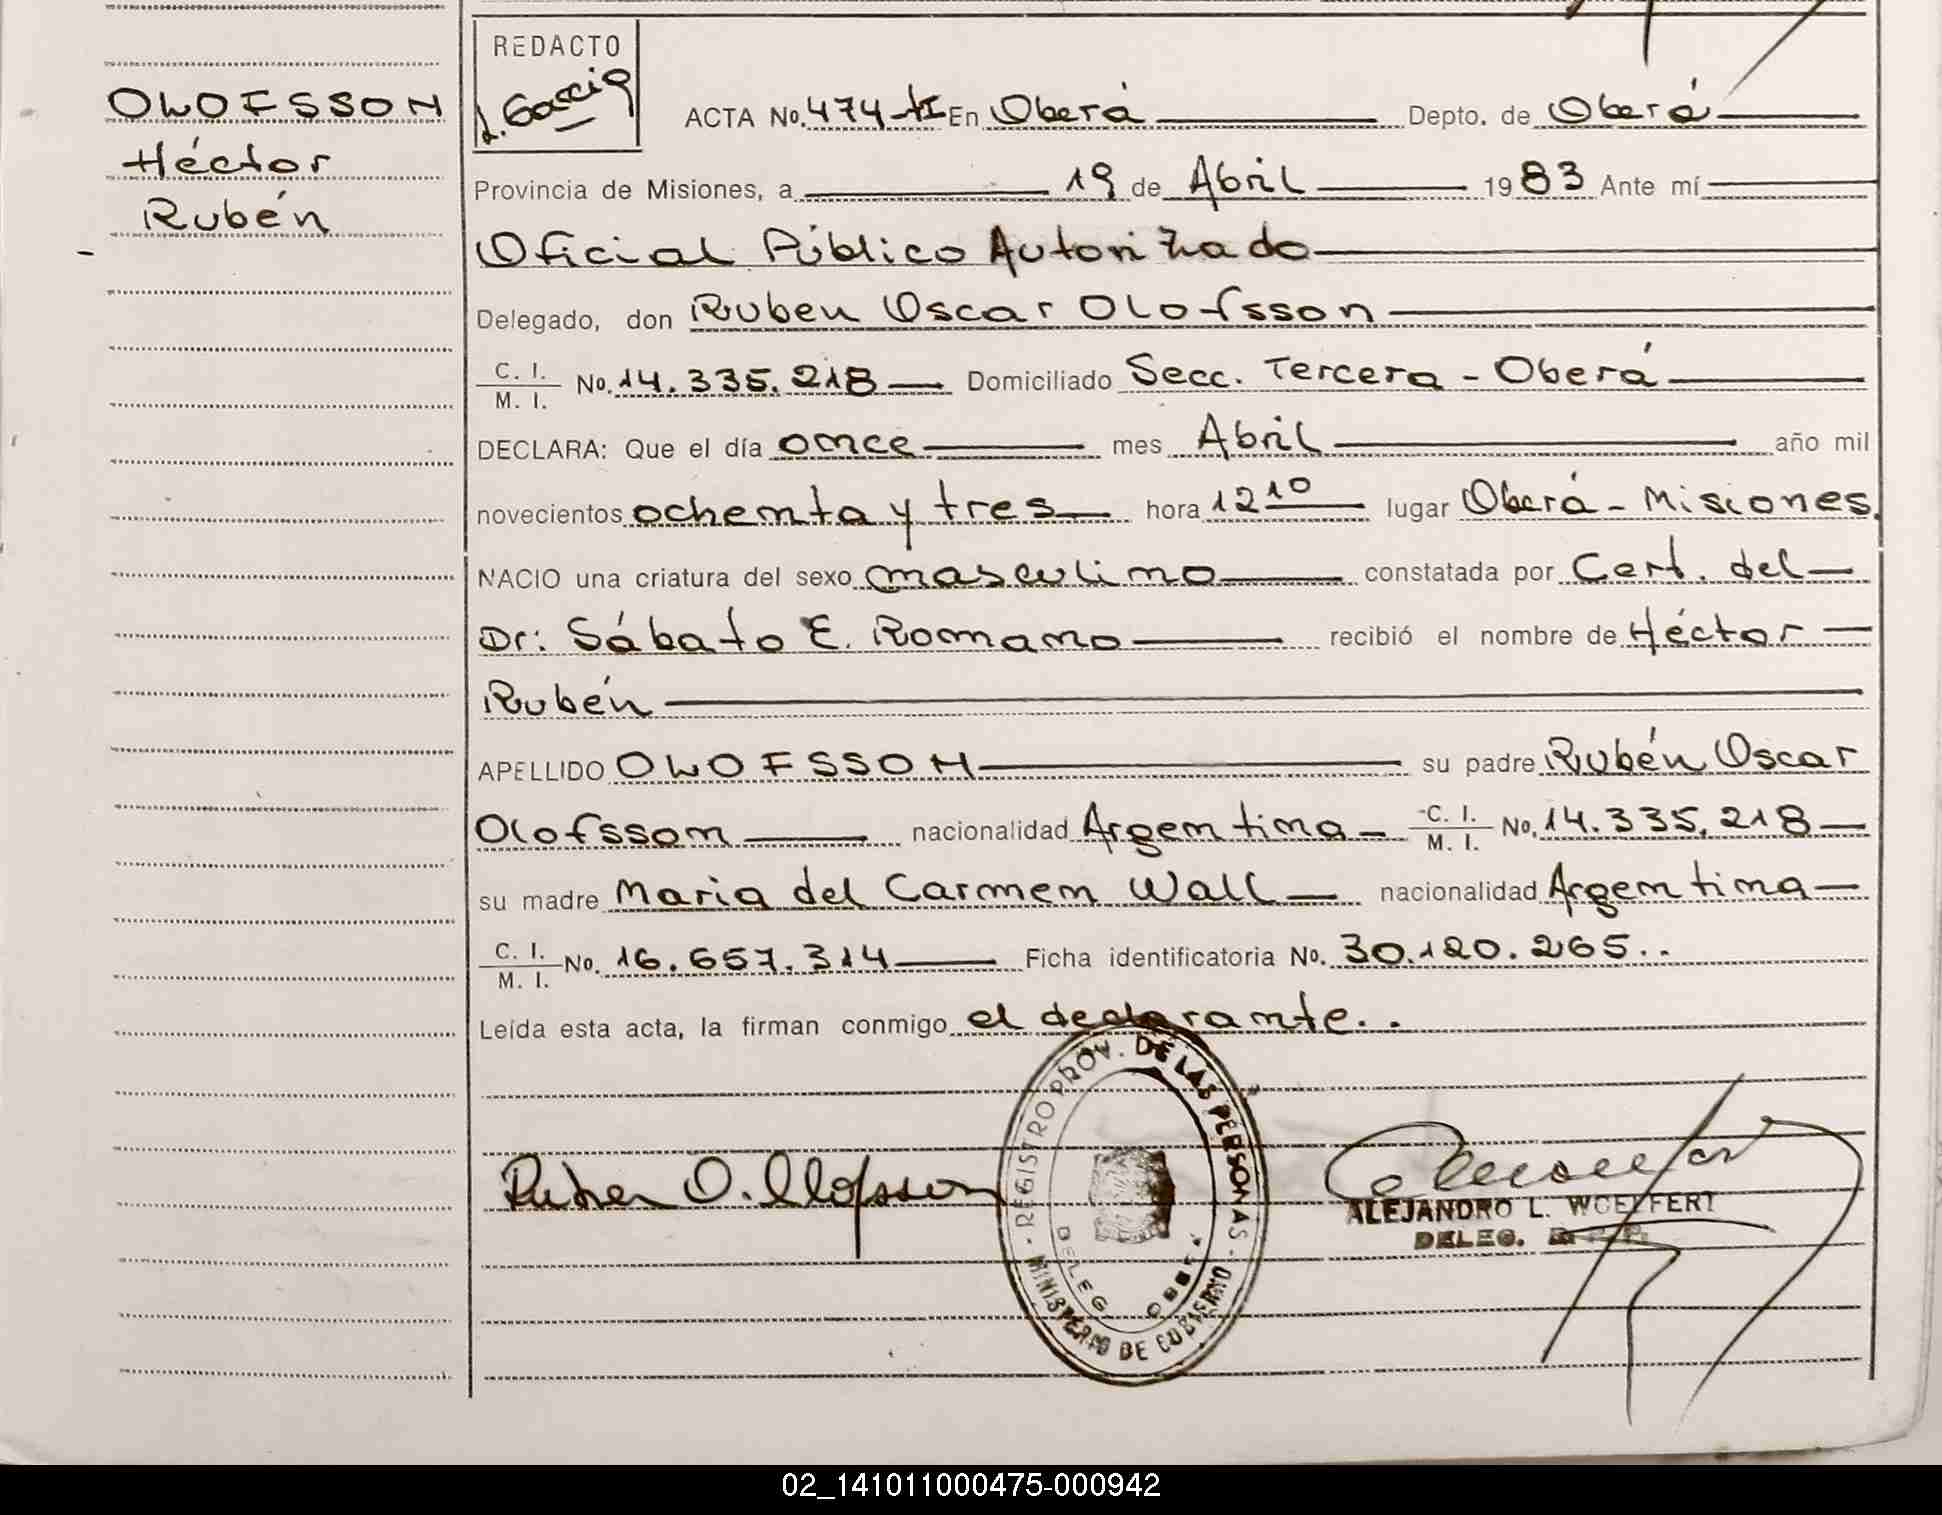 OLOFSSON
Héctor
Rubén
REDACTO
L. García
ACTA No. 474-tI En Oberá Depto. de Oberá
Provincia de Misiones, a 19 de Abril 1983 Ante mí
Oficial Público Autorizado
Delegado, don Ruben Oscar Olofsson
C. I. / M. I. No. 14.335.218 Domiciliado Secc. Tercera - Oberá
DECLARA: Que el día once mes Abril año mil
novecientos ochenta y tres hora 12 10 lugar Oberá - Misiones.
NACIO una criatura del sexo masculino constatada por Cert. del
Dr: Sábato E. Romano recibió el nombre de Héctor
Rubén
APELLIDO OLOFSSON su padre Rubén Oscar
Olofsson nacionalidad Argentina C. I. / M. I. No. 14.335.218
su madre Maria del Carmen Wall nacionalidad Argentina
C. I. / M. I. No. 16.657.314 Ficha identificatoria No. 30.120.265..
Leída esta acta, la firman conmigo el declarante..
REGISTRO PROV. DE LAS PERSONAS - MINISTERIO DE GOBIERNO
DELEG OBERA
Ruben O. Olofsson
ALEJANDRO L. WOELFERT
DELEG. R.P.P.
02_141011000475-000942